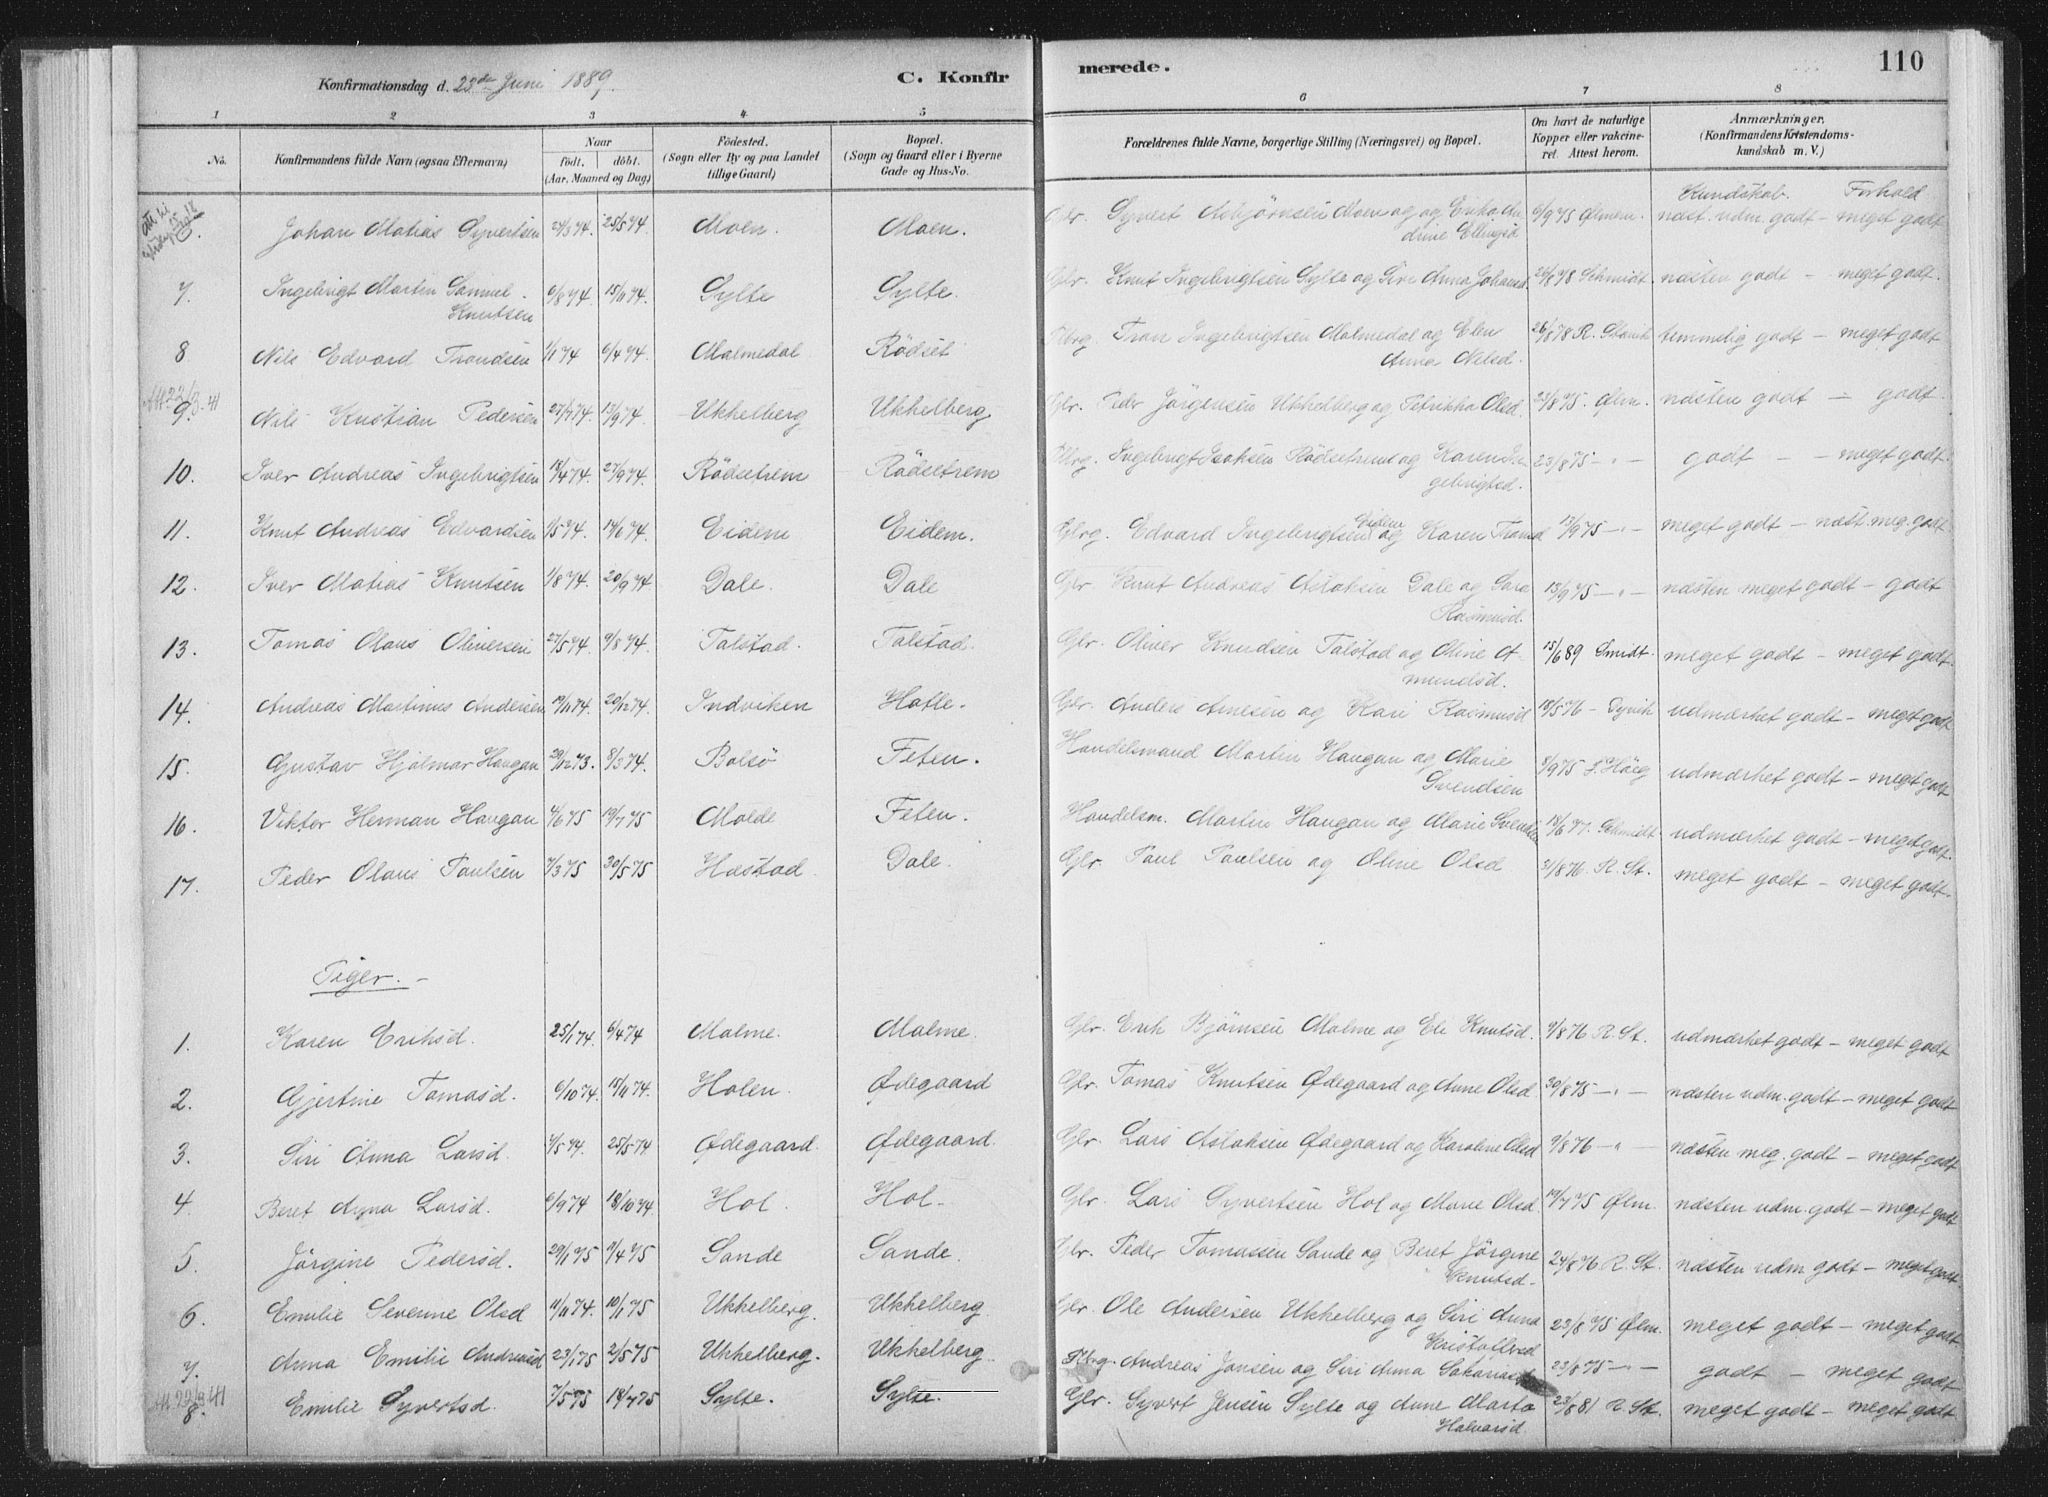 110
Konfirmationsdag d. 23de Juni 1889.
C. Konfirmerede.
1 2 3 4 5 6 7 8
No.
Konfirmandens fulde Navn (ogsaa Efternavn)
Naar
født. døbt.
(Aar, Maaned og Dag)
Fødested.
(Sogn eller By og paa Landet
tillige Gaard)
Bopæl.
(Sogn og Gaard eller i Byerne
Gade og Hus-No.
Forældrenes fulde Navne, borgerlige Stilling (Næringsvei) og Bopæl.
Om havt de naturlige
Kopper eller vakcine-
ret. Attest herom.
Anmærkninger,
(Konfirmandens Kristendoms-
kundskab m. V.)
Kundskab. Forhold
Johan Matias Syvertsen 25/5 74. Moen. Moen. Gbr. Syvert Asbjørnsen Moen og 6/9 75 Ølmem næst. udm. godt – meget godt
7. Ingebrigt Martin Samuel Knutsen 6/8 74. 15/11 74. Sylte Sylte. Gbr. Knut Ingebrigtsen Sylte og Siri Anna Johansd 26/8 78 Schmidt. næsten godt – meget godt.
8 Nils Edvard Trondsen 1/1 74 6/4 74. Malmedal Rödset Ingebrigtsen Malmedal og Elen Anna Nilsd. 26/8 78 R. temmelig godt – meget godt
9. Nils Kristian Pedersen 27/7 74. 13/9 74. Ukkelberg Ukkelberg Gbr. Peder Jörgensen Ukkelberg og Petrikka Olsd. 23/8 75. Ølm. næsten godt – godt.
10. Iver Andreas Ingebrigtsen 18/4 74. 27/9 74. Rödsetrem Rödsetrem Ingebrigt Isaksen Rödsetrem og Karen Ingebrigtsd. 23/8 75 – " – godt – meget godt.
11. Knut Andreas Edvardsen 1/5 74. 14/6 74. Eidem Eidem. Edvard Ingebrigtsen Eidem og Karen Tronsd 13/9 75 – " – meget godt – næst. meg. godt
12. Iver Matias Knutsen 1/8 74. 20/9 74 Dale. Dale Gbr Knut Andreas Aslaksen Dale og Sara Rasmusd. 13/9 75 – " – næsten meget godt – godt
13. Tomas Olaus Oliversen 27/5 74. 9/8 74. Talstad. Talstad. Gbr. Oliver Knudsen Talstad og Oline Amundsd. 15/6 89 Smidt. meget godt – meget godt.
14. Andreas Martinus Andersen 19/11 74. 20/12 74. Indviken Hatle. Gbr. Anders Arnesen og Kari Rasmusd 18/5 76 – Dyrvik udmærket godt – meget godt
15. Gustav Hjalmar Haugan 29/12 73. 8/3 74. Bolsø Feten. Handelsmand Martin Haugan og Marie Svendsen 8/9 75 F. Høeg udmærket godt – meget godt
16. Viktor Herman Haugan 4/6 75 19/7 75 Molde Feten. Handelsm. Martin Haugan og Marie Svendsen 18/6 77. Schmidt udmærket godt – meget godt.
17. Peder Olaus Paulsen 7/3 75 30/5 75 Hastad. Dale. Gbr. Paul Paulsen og Oline Olsd 21/8 76. R. St. meget godt – meget godt.
Piger. –
1. Karen Eriksd. 25/1 74. 6/4 74 Malme. Malme. Gbr. Erik Bjørnsen Malme og Eli Knutsd. 9/8 76 R. St. udmærket godt – meget godt
2. Gjertine Tomasd. 6/10 74. 15/11 74. Holen. Ødegaard Gbr. Tomas Knutsen Ødegaard og Anne Olsd 30/8 75 – " – næsten udm. godt – meget godt
3. Siri Anna Larsd. 4/5 74. 25/5 74 Ødegaard. Ødegaard. Gbr. Lars Aslaksen Ødegaard og Karoline Olsd 9/8 76 – " – næsten meg. godt – meget godt
4. Beret Anna Larsd. 6/9 74 18/10 74 Hol. Hol. Gbr. Lars Syvertsen Hol og Marie Olsd. 19/7 75 Ølm. næsten udm. godt – meget godt
5. Jörgine Pedersd. 29/1 75 9/4 75 Sande Sande. Gbr. Peder Tomassen Sande og Beret Jörgine Knutsd. 24/8 76 R. St. næsten udm godt – meget godt
6. Emilie Severine Olsd 11/11 74. 10/1 75 Ukkelberg. Ukkelberg. Gbr. Ole Andersen Ukkelberg og Siri Anna Kristoffersd 23/8 75 Ølm. meget godt – meget godt
7. Anna Emilie Andreasd 23/1 75 2/5 75 Ukkelberg. Ukkelberg. Andreas Jansen og Siri Anna Sakariasd 23/8 75 – " – godt – meget godt
8. Emilie Syvertsd. 7/5 75 18/7 75 Sylte. Sylte. Gbr. Syvert Jensen Sylte og Anne Marta Halvorsd. 23/8 81 R. St. meget godt – meget godt